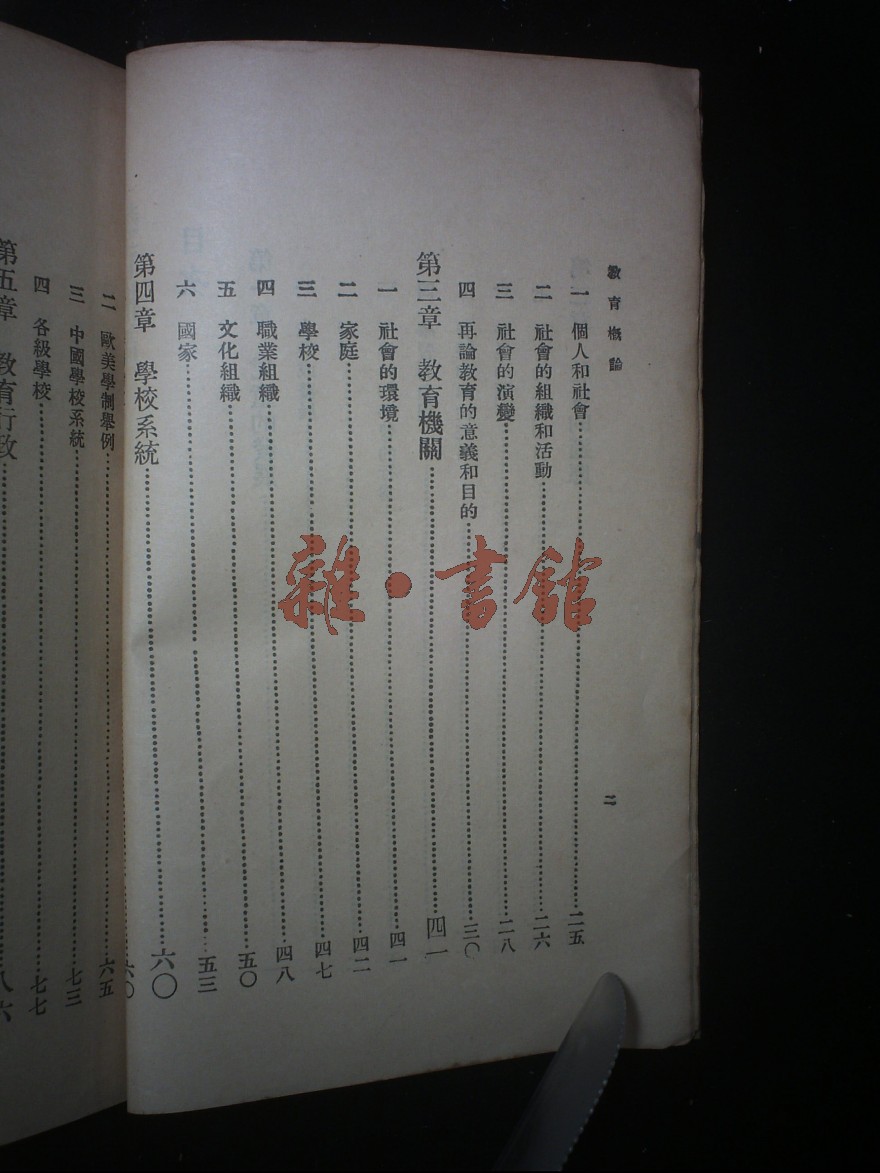 教育概論
二
一 個人和社會……二五
二 社會的組織和活動……二六
三 社會的演變……二八
四 再論教育的意義和目的……三〇
第三章 教育機關……四一
一 社會的環境……四一
二 家庭……四二
三 學校……四七
四 職業組織……四八
五 文化組織……五〇
六 國家……五三
第四章 學校系統……六〇
六〇
二 歐美學制舉例……六五
三 中國學校系統……七三
四 各級學校……七七
第五章 教育行政……八六
雜·書館